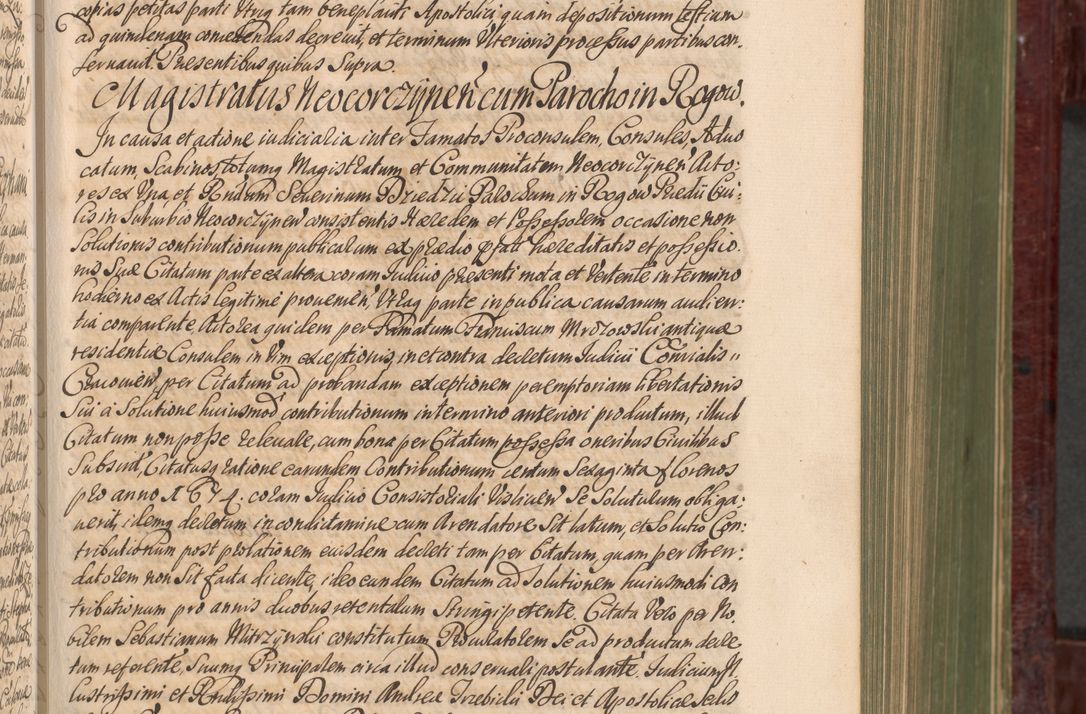 copias petitas parti Utriq tam beneplaciti Apostolici quam depositionum testium
ad quindenam concedendas decrevit, et terminum Ulterioris processus partibus con-
servavit. Presentibus quibus Supra.
Magistratus Neocorczÿneñ cum Parocho in Rogow.
In causa et actione iudicialia inter Famatos Proconsulem, Consules, Advo
catum, Scabinos, totumq Magistratum et Communitatem Neocorczÿneñ Acto-
res ex Una, et Rndum Severinum Dziedzic Parochum in Rogow Prædii Ci-
lis in Suburbio Neocorczÿneñ consistentis Hæredem et Possessorem occasione non
Solutionis contributionum publicarum ex prædio pfatt hæreditatis et possessio
nis Suæ Citatum parte ex altera coram Iudicio presenti mota et Vertente in termino
hodierno ex Actis legitimè proveneñ, Utraq parte in publica causarum audien-
tia comparente Actorea quidem per Famatum Franciscum Mrozowski antiquæ
residentiæ Consulem in Vim exceptionis, in et contra decretum Iudicii Consialis
Cracovieñ, per Citatum ad probandam exceptionem peremptoriam libertationis
Sui à Solutione huiusmodi contributionum in termino anteriori productum, illud
Citatum non posse relevare, cum bona per Citatum possessa oneribus Civilibus
Subsint, Citatusq ratione earundem Contributionum, centum Sexaginta florenos
pro anno 1674: coram Iudicio Consistoriali Vislicieñ Se Soluturum obliga-
verit, idemq decretum in condictamine cum Arendatore Sit latum, et Solutio Con-
tributionum post prolationem eiusdem decreti tam per Citatum, quam per Aren-
datorem non Sit facta dicente, ideo eandem Citatum ad Solutionem huiusmodi Con
tributionum pro annis duobus retentarum Stringi petente. Citata Vero per No-
bilem Sebastianum Mitrzÿnski constitutum Procuratorem Se ad productum decre
tum referente, Suumq Principalem circa illud conservari postulante. Iudicium Il
lustrissimi et Rndissimi Domini Andreæ Trzebicki Dei et Apostolicæ Sedis